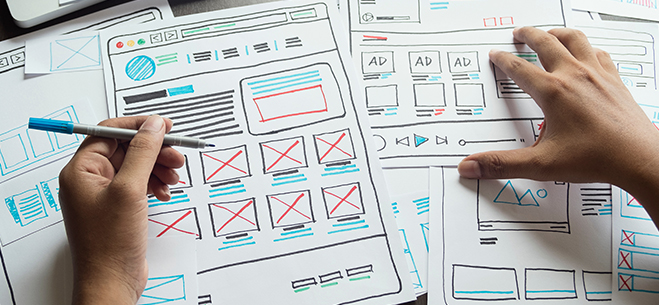 AD AD AD